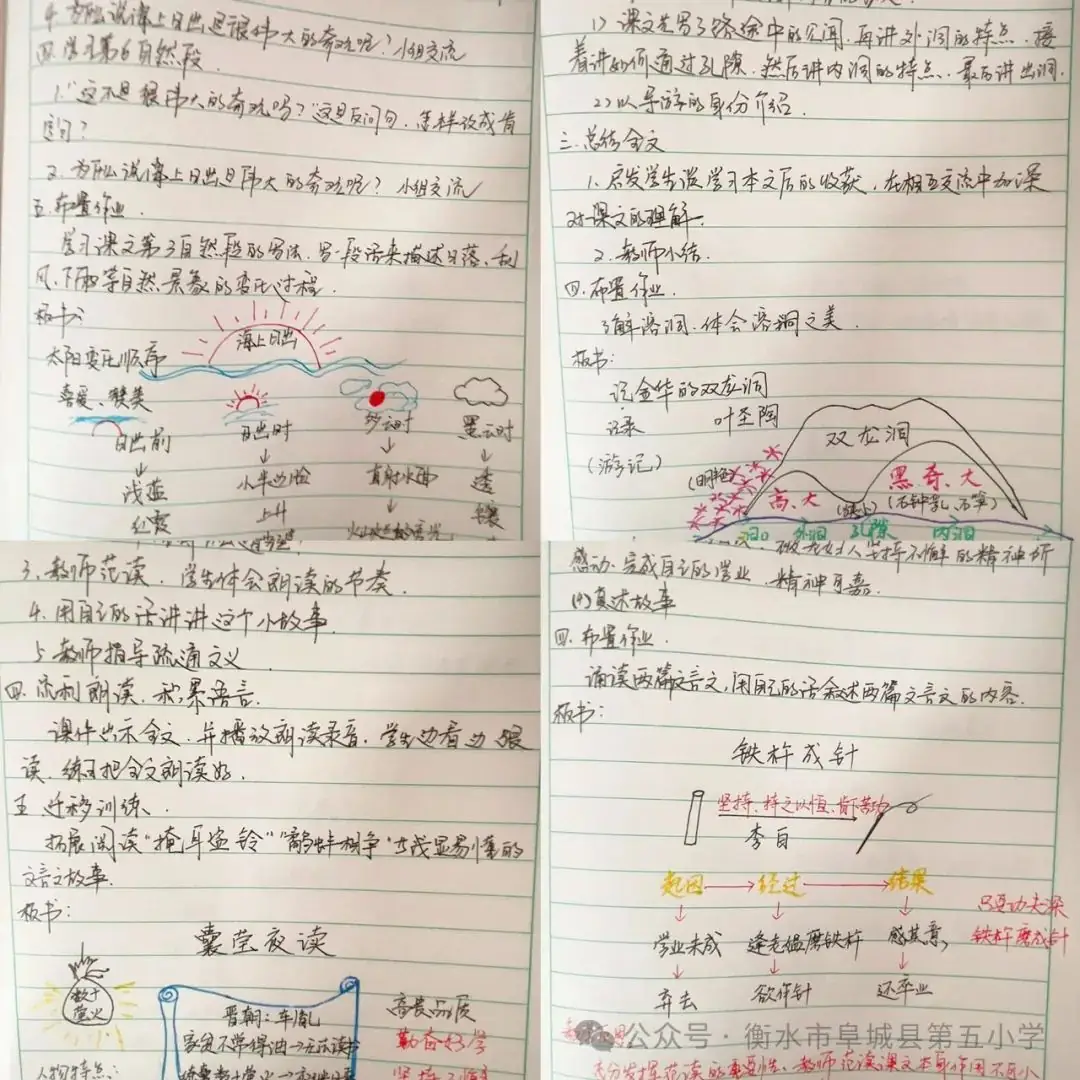 4. 为什么说海上日出是很伟大的奇观呢?小组交流
四.学习第6自然段.
1."这不是很伟大的奇观吗?"这是反问句.怎样改成肯
定句?
2.为什么说海上日出是伟大的奇观呢?小组交流
五.布置作业.
学习课文第3自然段的写法.写一段话来描述日落、刮
风、下雨等自然景象的变化过程.
板书:
海上日出
太阳变化顺序
喜爱、赞美
日出前 日出时 多云时 黑云时
浅蓝 小半边脸 直射水面 透
红霞 上升
1)课文先写了路途中的见闻.再讲外洞的特点.接
着讲如何通过孔隙.然后讲内洞的特点.最后讲出洞.
2)以导游的身份介绍.
三.总结全文
1.启发学生谈学习本文后的收获.在相互交流中加深
对课文的理解.
2.教师小结.
四.布置作业.
了解溶洞.体会溶洞之美.
板书:
记金华的双龙洞
记录 叶圣陶
(游记)
双龙洞
(明艳)
高、大
黑、奇、大
(石钟乳、石笋)
洞口 外洞 孔隙 内洞
3.教师范读.学生体会朗读的节奏.
4.用自己的话讲讲这个小故事.
5.教师指导疏通文义
四.流利朗读.积累语言.
课件出示全文.并播放朗读录音.学生边看边跟
读.练习把全文朗读好.
五.迁移训练.
拓展阅读"掩耳盗铃""鹬蚌相争"等浅显易懂的
文言文故事.
板书:
囊萤夜读
数十
萤火
晋朝:车胤
家贫不常得油→无法读书
人物特点:
高贵品质
勤奋好学
坚持不懈
被老妇人坚持不懈的精神所
感动.完成自己的学业.精神可嘉.
(4)复述故事
四.布置作业.
诵读两篇文言文,用自己的话叙述两篇文言文的内容.
板书:
铁杵成针
坚持、持之以恒、肯下苦功
李白
起因 → 经过 → 结果
学业未成 逢老媪磨铁杵 感其意
弃去 欲作针 还卒业
只要功夫深
铁杵磨成针
公众号·衡水市阜城县第五小学